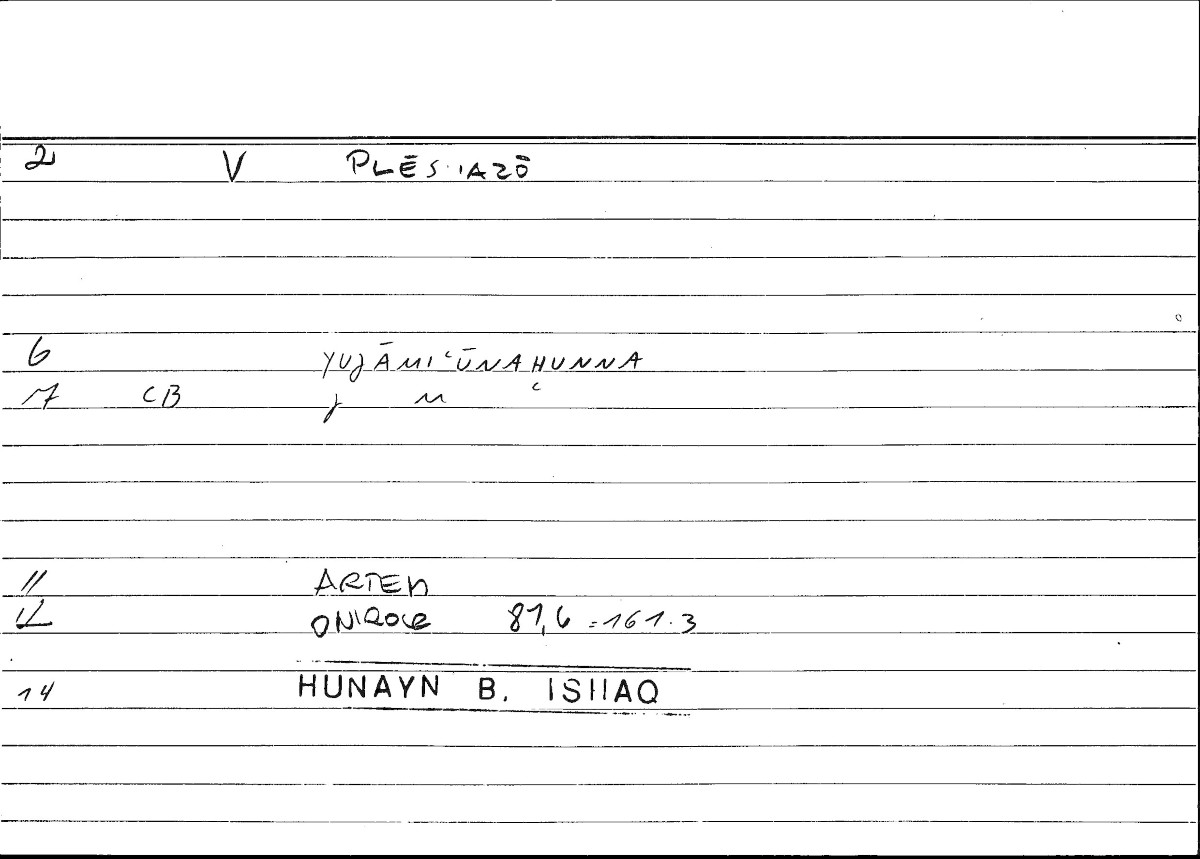 2 V PLĒSIAZŌ
6 YUJĀMIʿŪNAHUNNA
7 CB j m ʿ
11 ARTEM
12 ONIROCR 87,6 = 161.3
14 HUNAYN B. ISHAQ